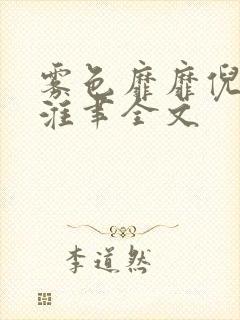 雾色靡靡倪
淮聿全文
李道然